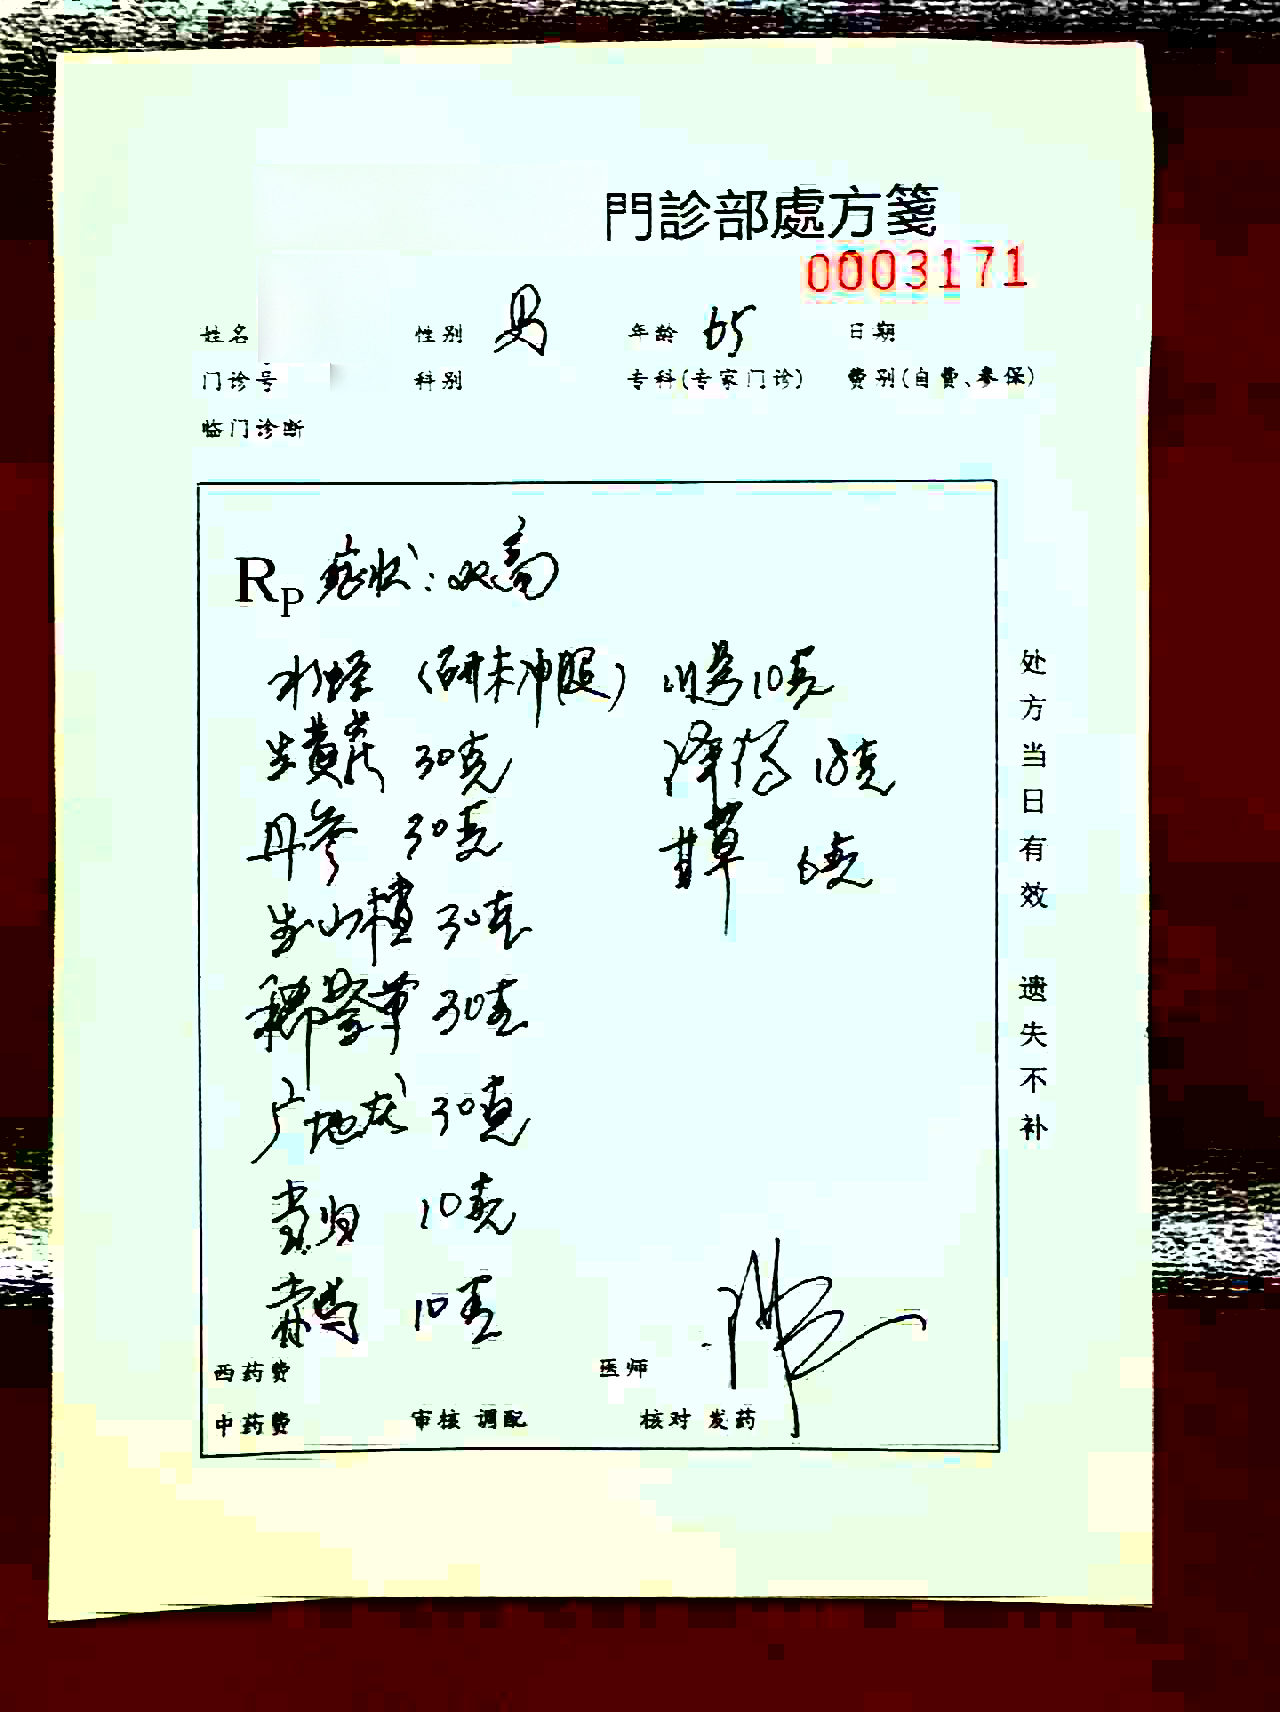 門診部處方箋
0003171
姓名 性别 男 年龄 65 日期
门诊号 科别 专科(专家门诊) 费别(自费、参保)
临门诊断
Rp 症状：双高
水蛭 (研末冲服) 川芎10克
生黄芪 30克 泽泻 18克
丹参 30克 甘草 6克
生山楂 30克
豨莶草 30克
广地龙 30克
当归 10克
赤芍 10克
西药费 医师
中药费 审核 调配 核对 发药
处方当日有效 遗失不补